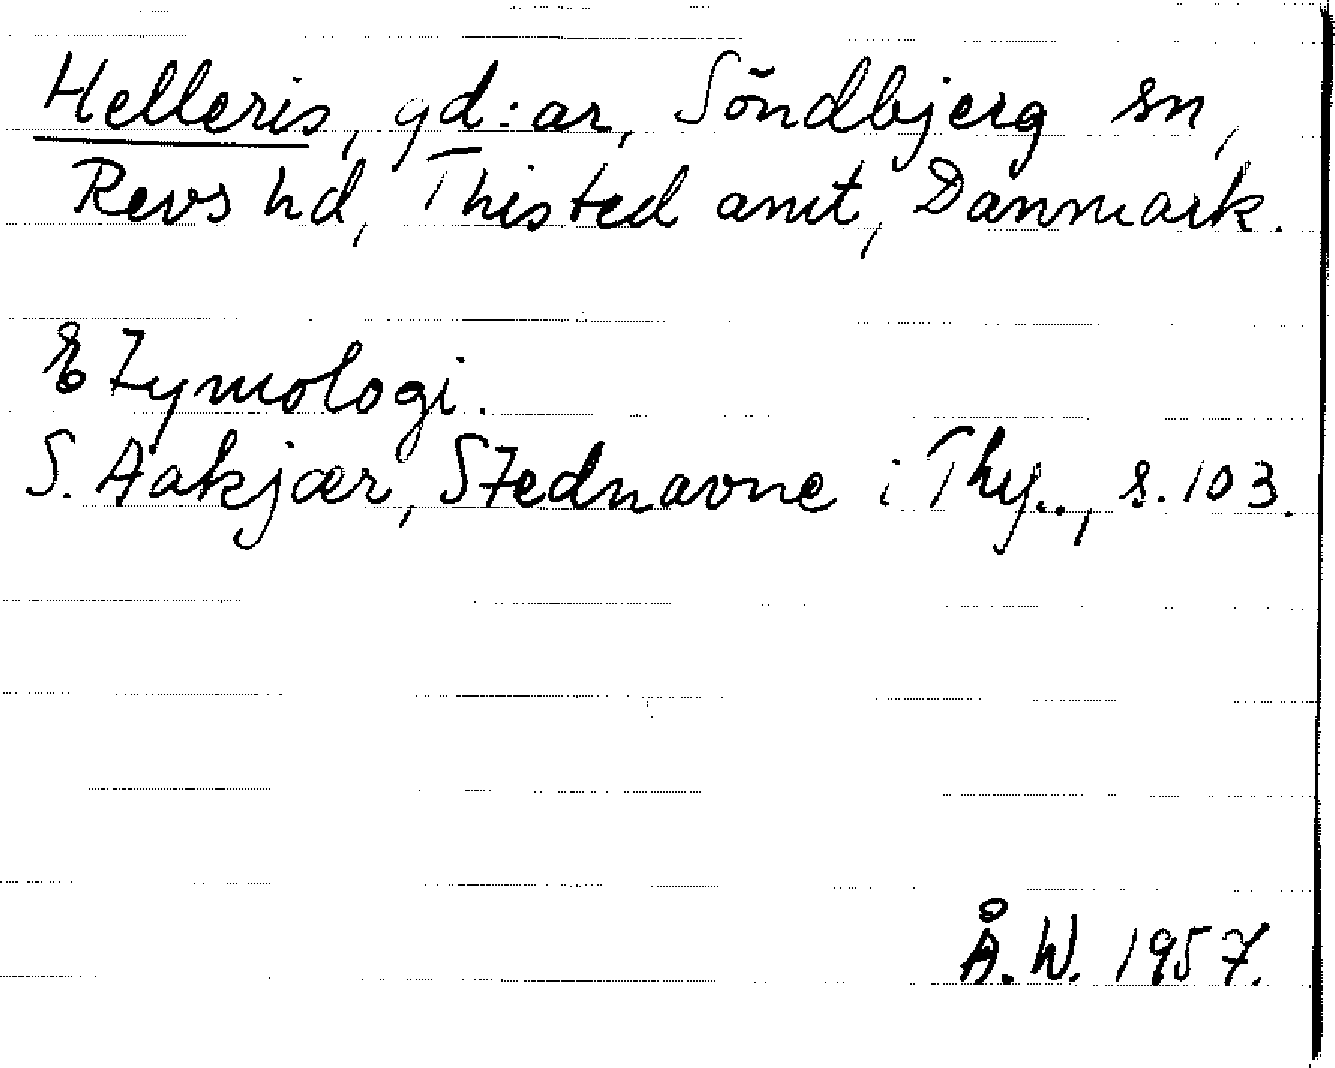 Helleris, gd:ar, Söndbjerg sn,
Revs hd, Thisted amt, Danmark.
Etymologi.
S. Aakjær, Stednavne i Thy.., s. 103.
Å. W. 1957.